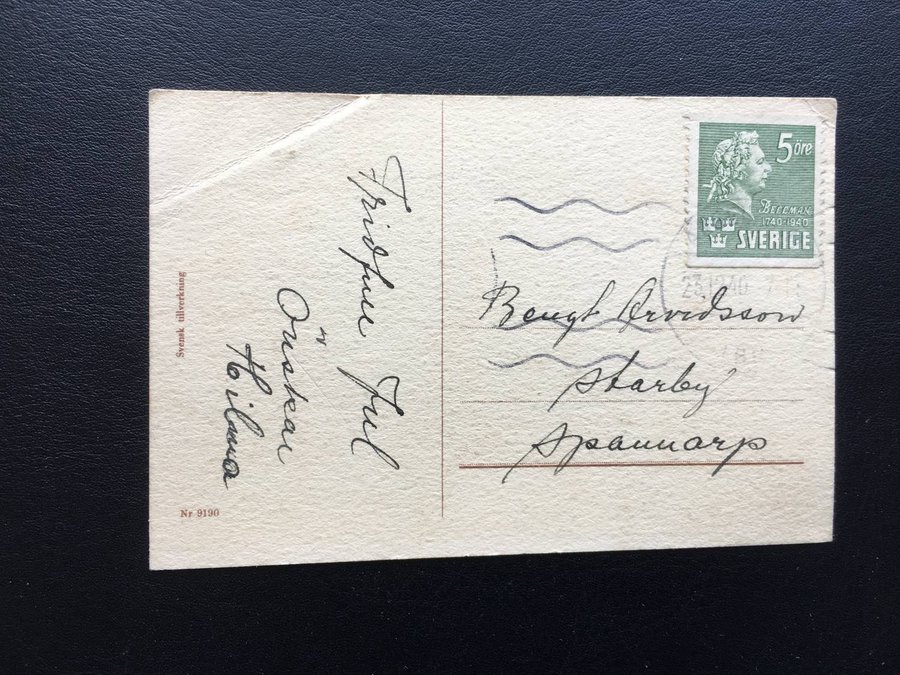 Fridfull Jul
Önskar
Hilma
Svensk tillverkning
Nr 9190
5 öre
BELLMAN
1740-1940
SVERIGE
23.12.40
Bengt Arvidsson
Starby
Spannarp